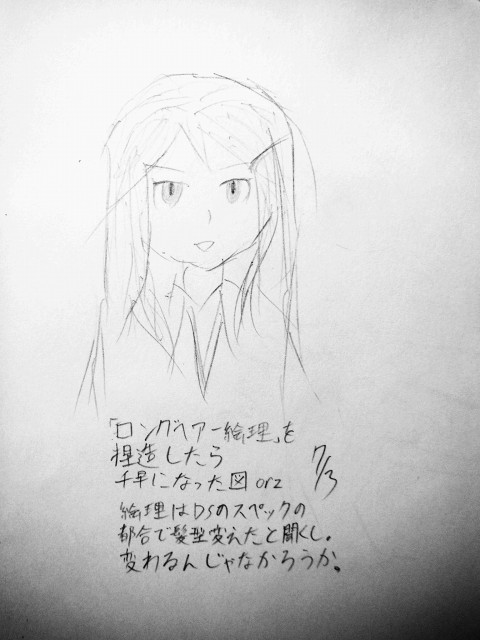 「ロングヘアー絵理」を
捏造したら
千早になった図orz
7/3
絵理はDSのスペックの
都合で髪型変えたと聞くし。
変わるんじゃなかろうか。